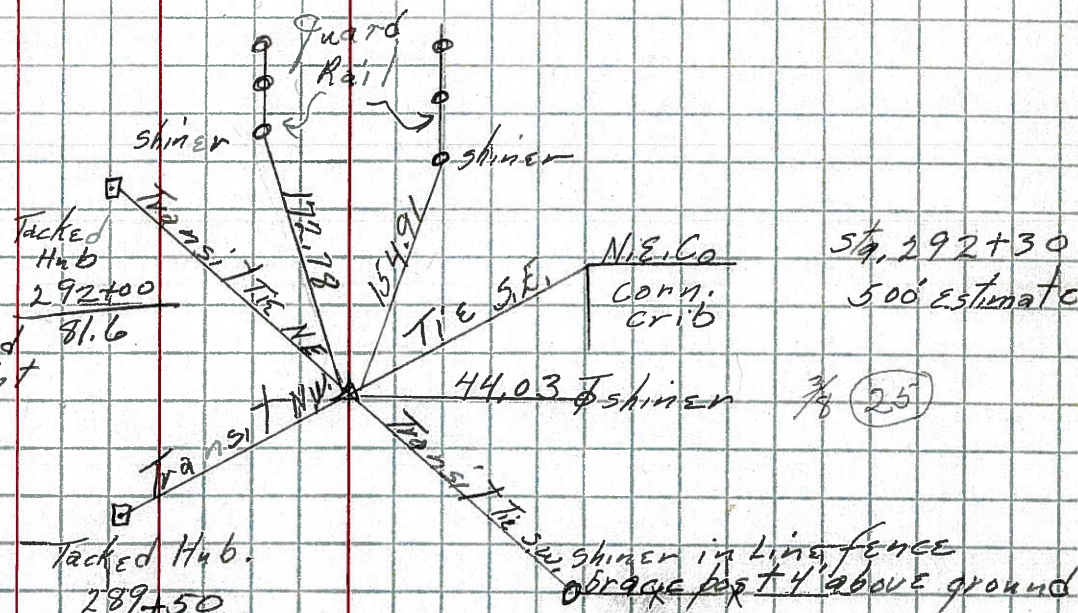 Guard
Rail
shiner
shiner
Tacked
Hub
292+00
81.6
Transit Tie N.E.
172.78
154.91
Tie S.E.
N.E. Co
corn.
crib
sta. 292+30
500' Estimate
Transit N.W.
44.03 shiner
3/8 25
Transit Tie S.W.
Tacked Hub.
289+50
shiner in Line fence
brace post 4' above ground